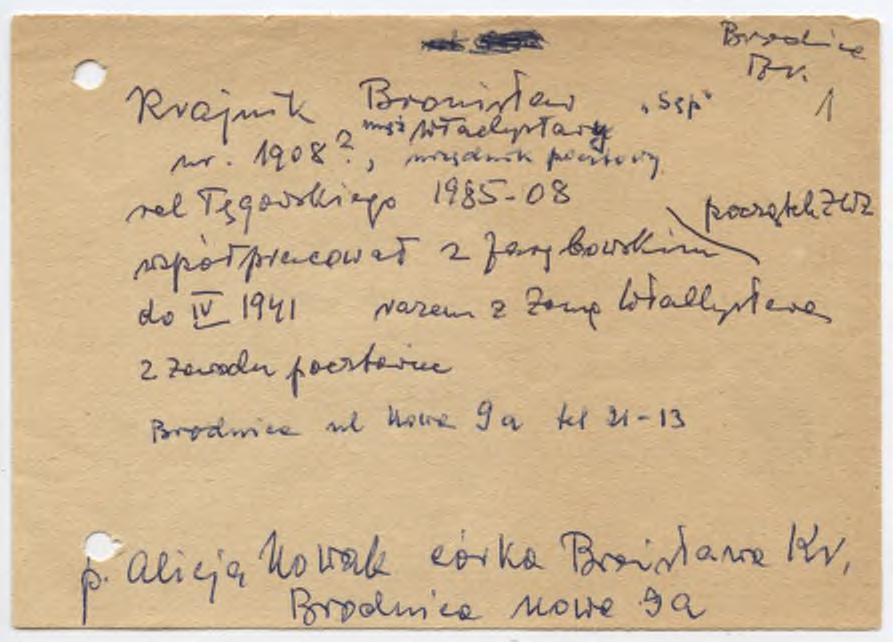 Brodnica
Br.
1
Krajnik Bronisław „Sęp"
mąż Władysławy
ur. 1908?, urzędnik pocztowy
rel Tęgowskiego 1985-08
początek ZWZ
współpracował z
do IV 1941 razem z żoną Władysławą
z zawodu pocztowiec
Brodnica ul Nowa 9a tel 21-13
p. Alicja Nowak córka Bronisława Kr.
Brodnica Nowa 9a